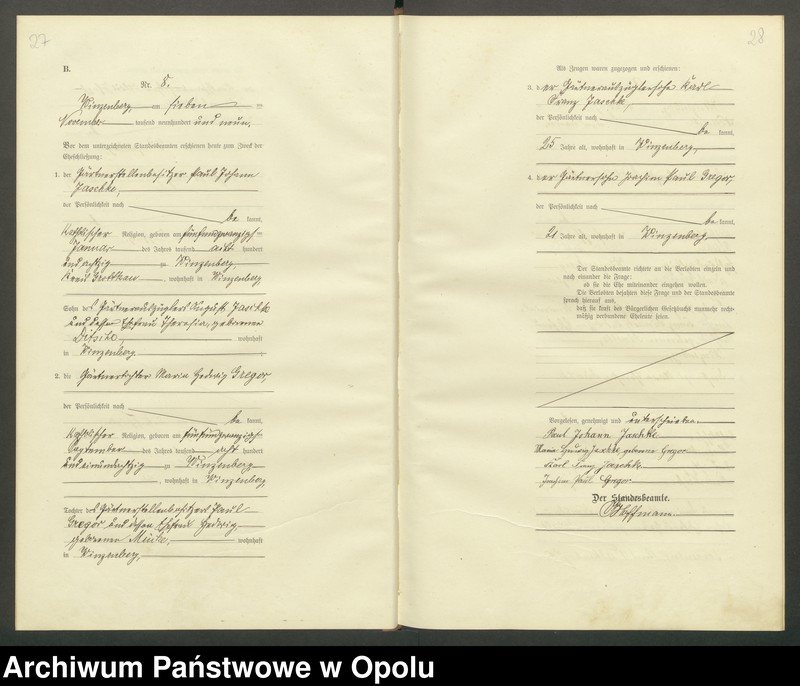 27
B.
Nr. 8.
Winzenberg am sieben
November tausend neunhundert und neun.
Vor dem unterzeichneten Standesbeamten erschienen heute zum Zweck der
Eheschließung:
1. der Gärtnerstellenbesitzer Paul Johann
Jaschke,
der Persönlichkeit nach
be kannt,
katholischer Religion, geboren am fünfundzwanzigsten
Januar des Jahres tausend acht hundert
und achtzig Winzenberg,
Kreis Grottkau, wohnhaft in Winzenberg
Sohn des Gärtnerauszüglers August Jaschke
und dessen Ehefrau Theresia, geborenen
wohnhaft
in Winzenberg
2. die Gärtnertochter Maria Hedwig Gregor,
der Persönlichkeit nach
be kannt,
katholischer Religion, geboren am fünfundzwanzigsten
September des Jahres tausend acht hundert
zu Winzenberg
, wohnhaft in Winzenberg,
Tochter des Gärtnerstellenbesitzers Paul
Gregor und dessen Ehefrau Hedwig
geborenen wohnhaft
in Winzenberg,
28
Als Zeugen waren zugezogen und erschienen:
3. der Gärtnerauszüglersohn Karl
Franz Jaschke,
der Persönlichkeit nach
be kannt,
25 Jahre alt, wohnhaft in Winzenberg,
4. der Gärtnersohn Joachim Paul Gregor,
der Persönlichkeit nach
be kannt,
21 Jahre alt, wohnhaft in Winzenberg,
Der Standesbeamte richtete an die Verlobten einzeln und
nach einander die Frage:
ob sie die Ehe miteinander eingehen wollen.
Die Verlobten bejahten diese Frage und der Standesbeamte
sprach hierauf aus,
daß sie kraft des Bürgerlichen Gesetzbuchs nunmehr recht-
mäßig verbundene Eheleute seien.
Vorgelesen, genehmigt und unterschrieben.
Paul Johann Jaschke
Maria Hedwig Jaschke geborene Gregor
Karl Franz Jaschke
Joachim Paul Gregor
Der Standesbeamte.
Hoffmann.
Archiwum Państwowe w Opolu